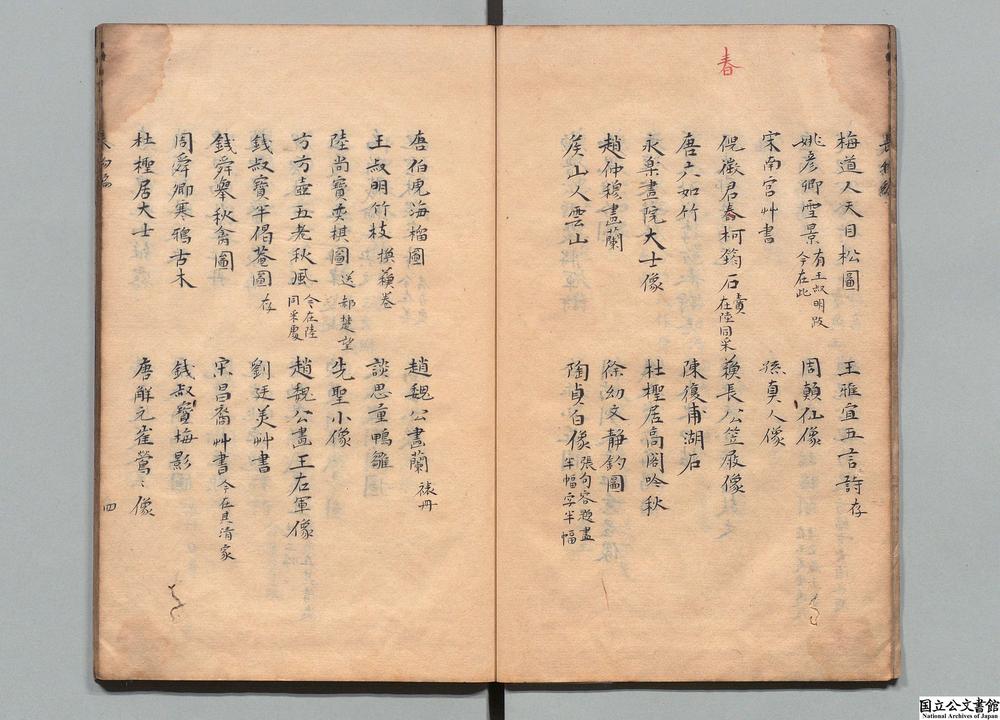 春
梅道人天目松圖　王雅宜五言詩存
姚彥卿雪景有王叔明跋今在此　周顛仙像
宋南宮艸書　孫真人像
倪徵君春柯筠石賣在陸同采　蘓長公笠屐像
唐六如竹　陳復甫湖石
永樂畫院大士像　杜檉居高閣吟秋
趙仲穆畫蘭　徐幼文靜釣圖
矦山人雲山　陶貞白像張句容題畫半幅字半幅
唐伯虎海榴圖　趙魏公畫蘭裱丹
王叔明竹枝換蘓卷　談思重鴨雛
陸尚寶奕棋圖送郝楚望　先聖小像
方方壺五老秋風今在陸同采處　趙魏公畫王右軍像
錢叔寶半偈菴圖存　劉廷美艸書
錢舜舉秋禽圖　宋昌裔艸書今在具清家
周舜卿寒鴉古木　錢叔寶梅影
杜檉居大士　唐解元崔鶯〻像
四
国立公文書館
National Archives of Japan